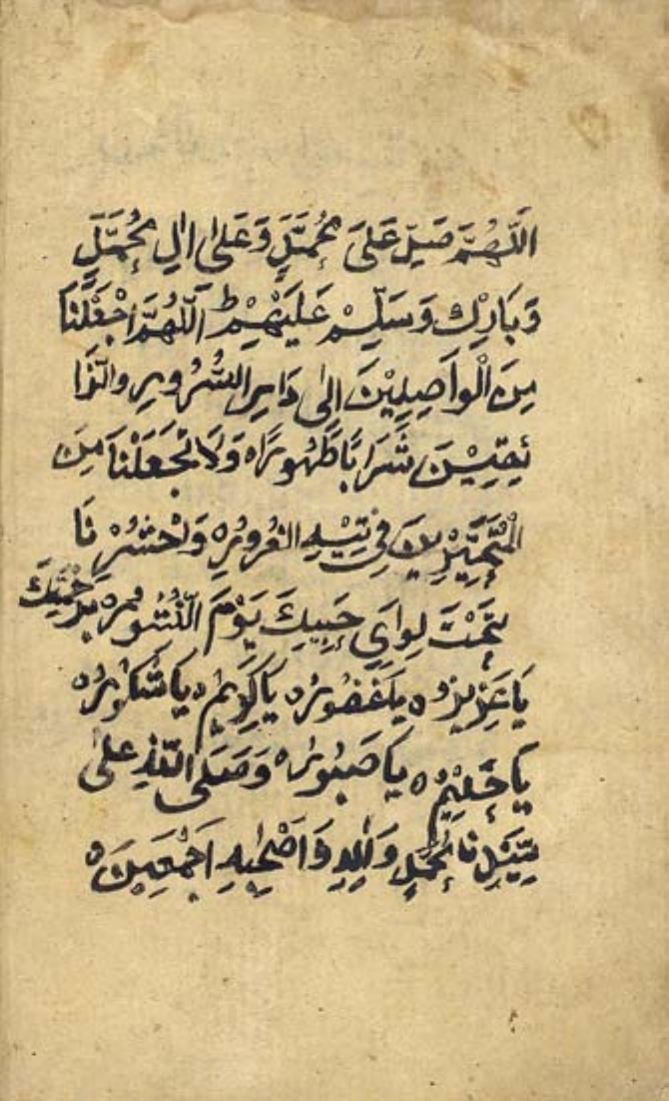 اَللّٰهُمَّ صَلِّ عَلَىٰ مُحَمَّدٍ وَعَلٰى اٰلِ مُحَمَّدٍ
وَبَارِكْ وَسَلِّمْ عَلَيْهِمْ ط اَللّٰهُمَّ اجْعَلْنَا
مِنَ الْوَاصِلِيْنَ اِلٰى دَارِ السُّرُوْرِ وَالذَّا
ئِقِيْنَ شَرَابًا طَهُوْرًا ه وَلَا تَجْعَلْنَا مِنَ
الْمُتَحَيِّرِيْنَ فِيْ تِيْهِ الْغُرُوْرِ ه وَاحْشُرْنَا
تَحْتَ لِوَايِ حَبِيبِكَ يَوْمَ النُّشُوْرِ ه بِرَحْمَتِكَ
يَا عَزِيْزُ ه يَا غَفُوْرُ ه يَا كَرِيْمُ ه يَا شَكُوْرُ ه
يَا حَلِيْمُ ه يَا صَبُوْرُ ه وَصَلَّى اللّٰهُ عَلٰى
سَيِّدِنَا مُحَمَّدٍ وَاٰلِهٖ وَاَصْحٰبِهٖ اَجْمَعِيْنَ ه